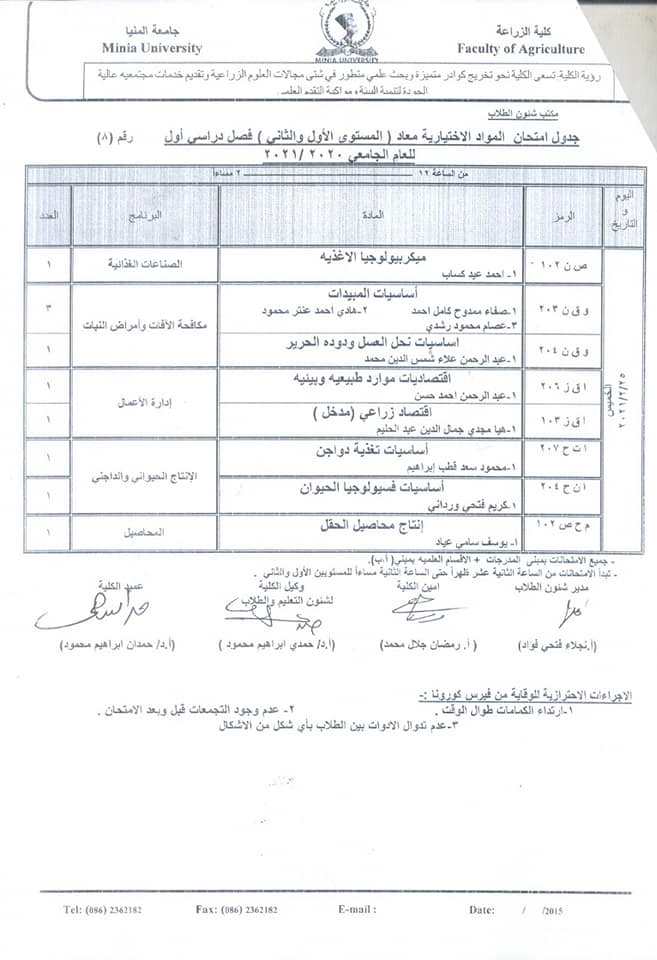 كلية الزراعة
Faculty of Agriculture
MINIA UNIVERSITY
جامعة المنيا
Minia University
رؤية الكلية-تسعى الكلية نحو تخريج كوادر متميزة وبحث علمي متطور في شتى مجالات العلوم الزراعية وتقديم خدمات مجتمعيه عالية
الجودة لتنمية البيئة ومواكبة التقدم العلمي
مكتب شئون الطلاب
جدول امتحان المواد الاختيارية معاد ( المستوى الأول والثاني ) فصل دراسي أول رقم (٨)
للعام الجامعي ٢٠٢٠ /٢٠٢١
اليوم و التاريخ
من الساعة ١٢ ــــــ ٢ مساءا
الرمز المادة البرنامج العدد
الخميس ٢٠٢١/٢/٢٥
ص ن ١٠٢ ميكربيولوجيا الاغذيه الصناعات الغذائية ١
١- احمد عيد كساب
و ق ن ٢٠٣ أساسيات المبيدات مكافحة الأفات وأمراض النبات ٣
١-صفاء ممدوح كامل احمد ٢-هادي احمد عنتر محمود
٣-عصام محمود رشدي
و ق ن ٢٠٤ اساسيات نحل العسل ودوده الحرير ١
١-عبد الرحمن علاء شمس الدين محمد
ا ق ز ٢٠٦ اقتصاديات موارد طبيعيه وبينيه إدارة الأعمال ١
١-عبد الرحمن احمد حسن
ا ق ز ١٠٣ اقتصاد زراعي (مدخل ) ١
١-هيا مجدي جمال الدين عبد الحليم
ا ت ح ٢٠٧ أساسيات تغذية دواجن الإنتاج الحيواني والداجنى ١
١-محمود سعد قطب إبراهيم
ا ن ح ٢٠٤ أساسيات فسيولوجيا الحيوان ١
١-كريم فتحي ورداني
م ح ص ١٠٢ إنتاج محاصيل الحقل المحاصيل ١
١-يوسف سامي عياد
- جميع الامتحانات بمبنى المدرجات + الأقسام العلميه بمبنى(أ،ب).
- تبدأ الامتحانات من الساعة الثانية عشر ظهراً حتى الساعة الثانية مساءاً للمستويين الأول والثاني .
مدير شئون الطلاب امين الكلية وكيل الكلية عميد الكلية
لشئون التعليم والطلاب
(أ.نجلاء فتحي فؤاد) (أ. رمضان جلال محمد) (أ.د/ حمدي ابراهيم محمود ) (أ.د/ حمدان ابراهيم محمود )
الاجراءات الاحترازية للوقاية من فيرس كورونا :-
١-ارتداء الكمامات طوال الوقت . ٢- عدم وجود التجمعات قبل وبعد الامتحان .
٣-عدم تدوال الادوات بين الطلاب بأي شكل من الاشكال
Tel: (086) 2362182 Fax: (086) 2362182 E-mail : Date: / /2015